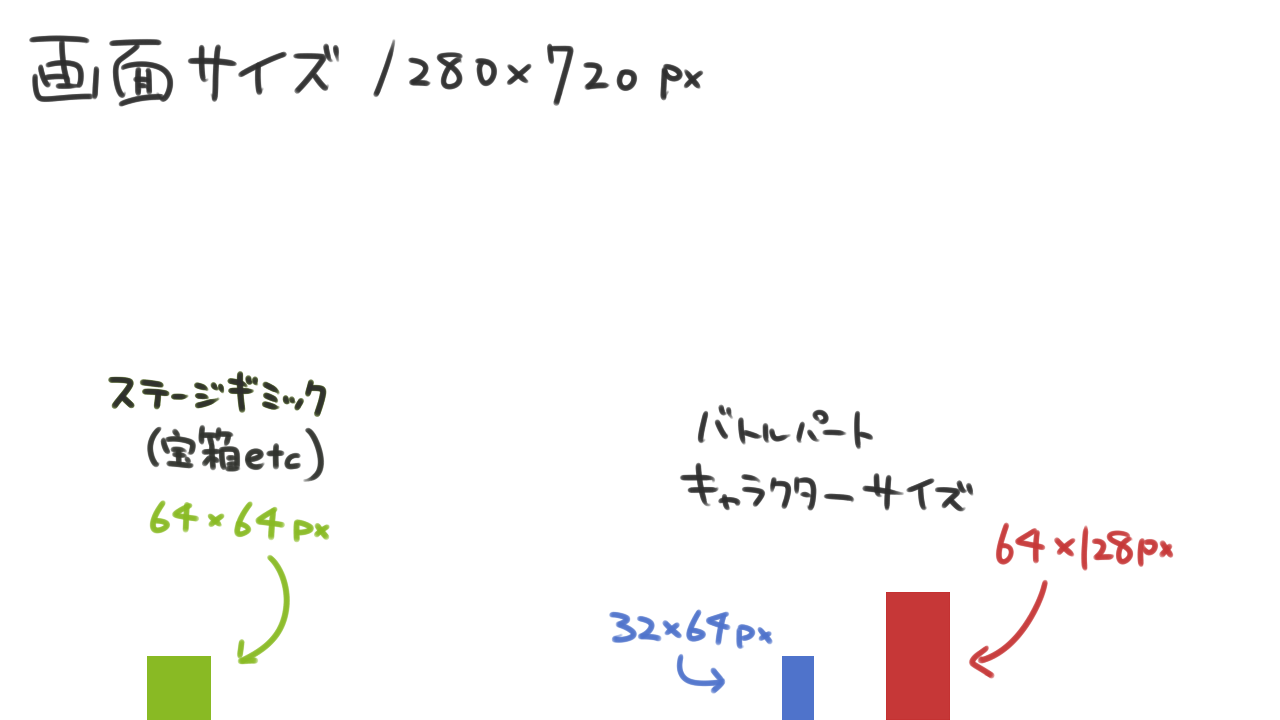 画面サイズ 1280×720px
ステージギミック
(宝箱etc)
64×64px
バトルパート
キャラクターサイズ
64×128px
32×64px